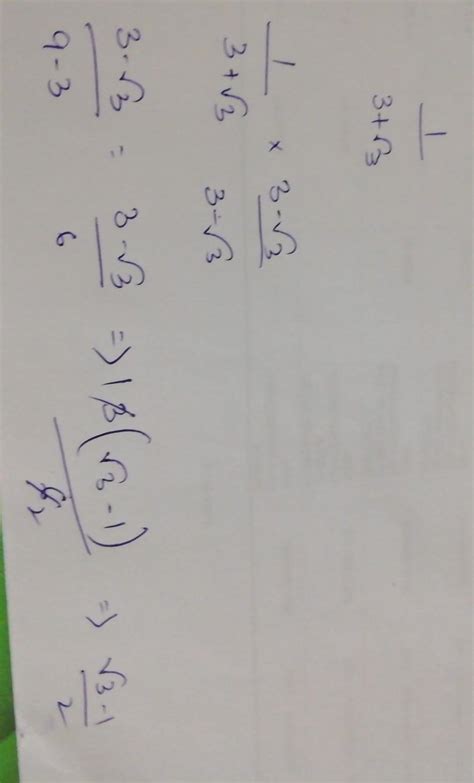 1/(3+√3)
1/(3+√3) × (3-√3)/(3-√3)
(3-√3)/(9-3) = (3-√3)/6 => 1 3(√3-1)/6 2 => (√3-1)/2